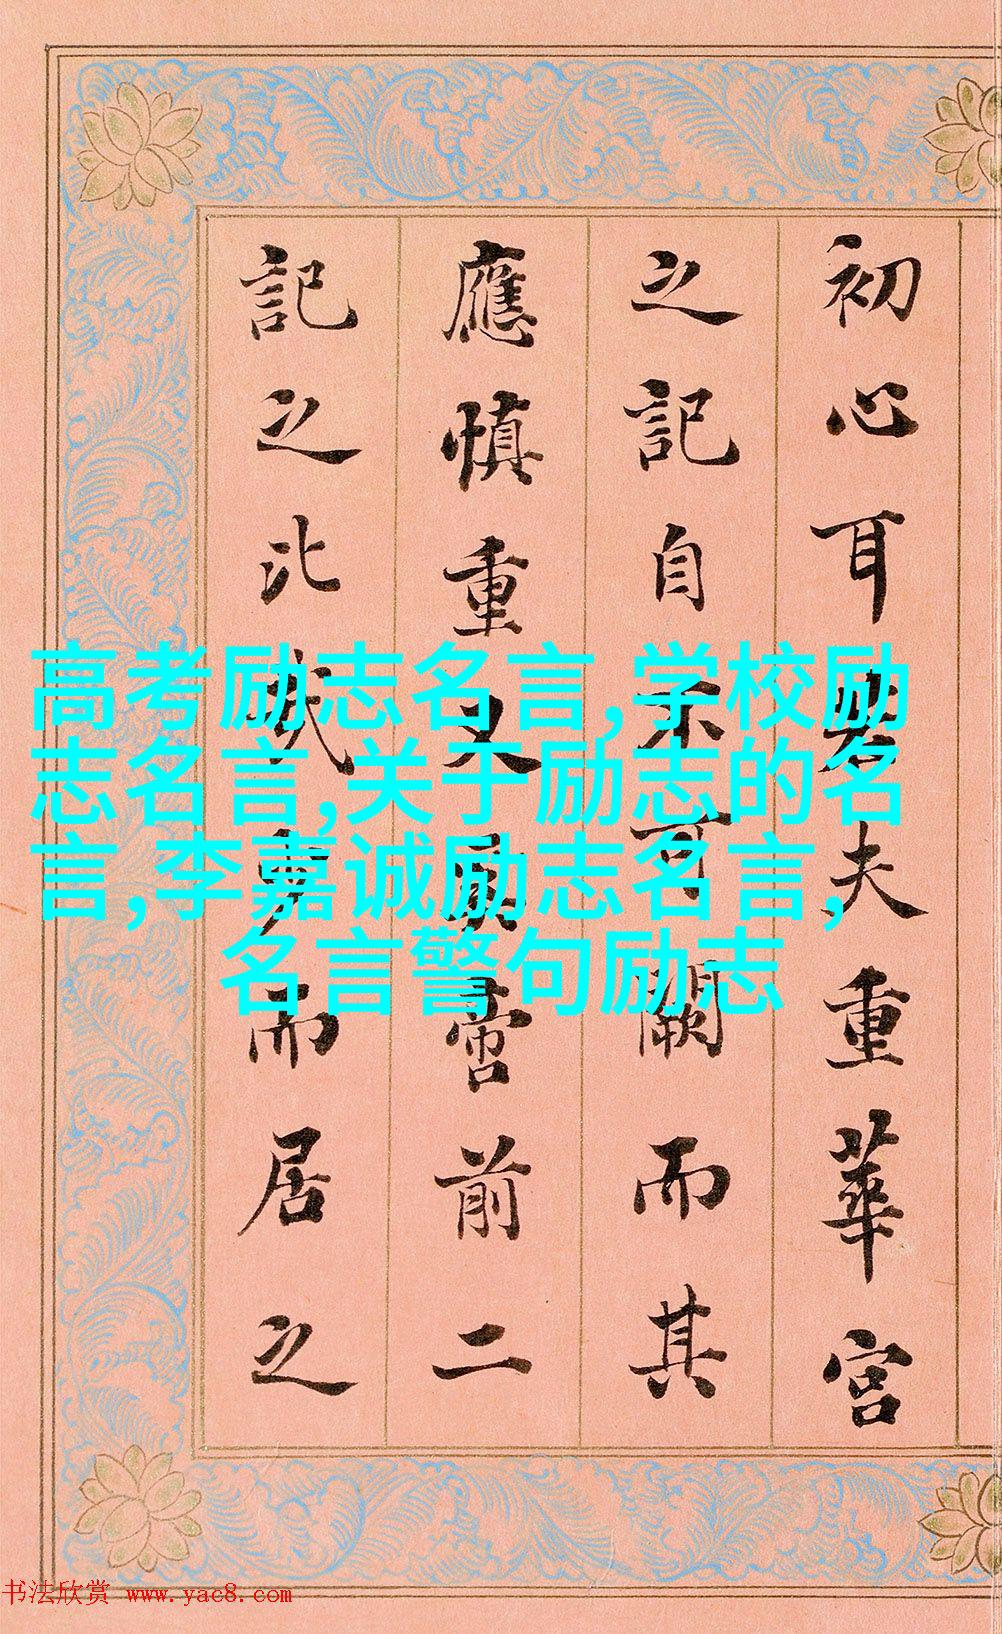 初心耳若夫重華宮
之記自不可闕而其
應慎重又前二
記之而居之
高考励志名言,学校励
志名言,关于励志的名
言,李嘉诚励志名言,
名言警句励志
书法欣赏 www.yac8.com